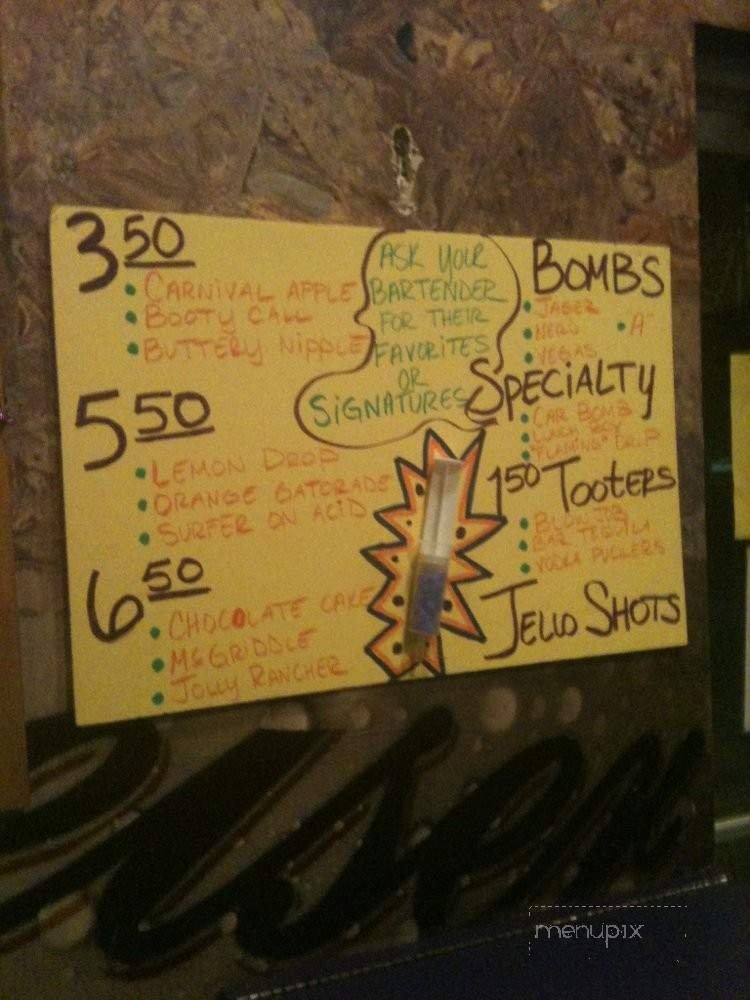 3 50
• CARNIVAL APPLE
• BOOTY CALL
• BUTTERY NIPPLE
5 50
• LEMON DROP
• ORANGE GATORADE
• SURFER ON ACID
6 50
• CHOCOLATE CAKE
• McGRIDDLE
• JOLLY RANCHER
ASK YOUR
BARTENDER
FOR THEIR
FAVORITES
OR
SIGNATURES
BOMBS
• JAGER
• NERD • "A"
• VEGAS
SPECIALTY
• CAR BOMB
• LUNCH BOX
• "FLAMING" DR. P
1 50 TOOTERS
• BLOW JOB
• BAR TEQUILA
• VODKA PUCKERS
JELLO SHOTS
menupix